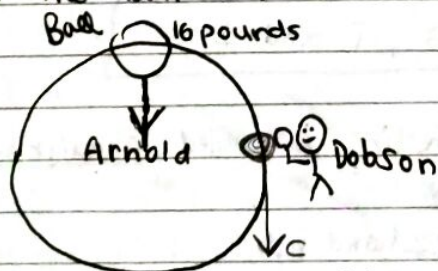 Ball 16 pounds
Arnold
Dobson
C